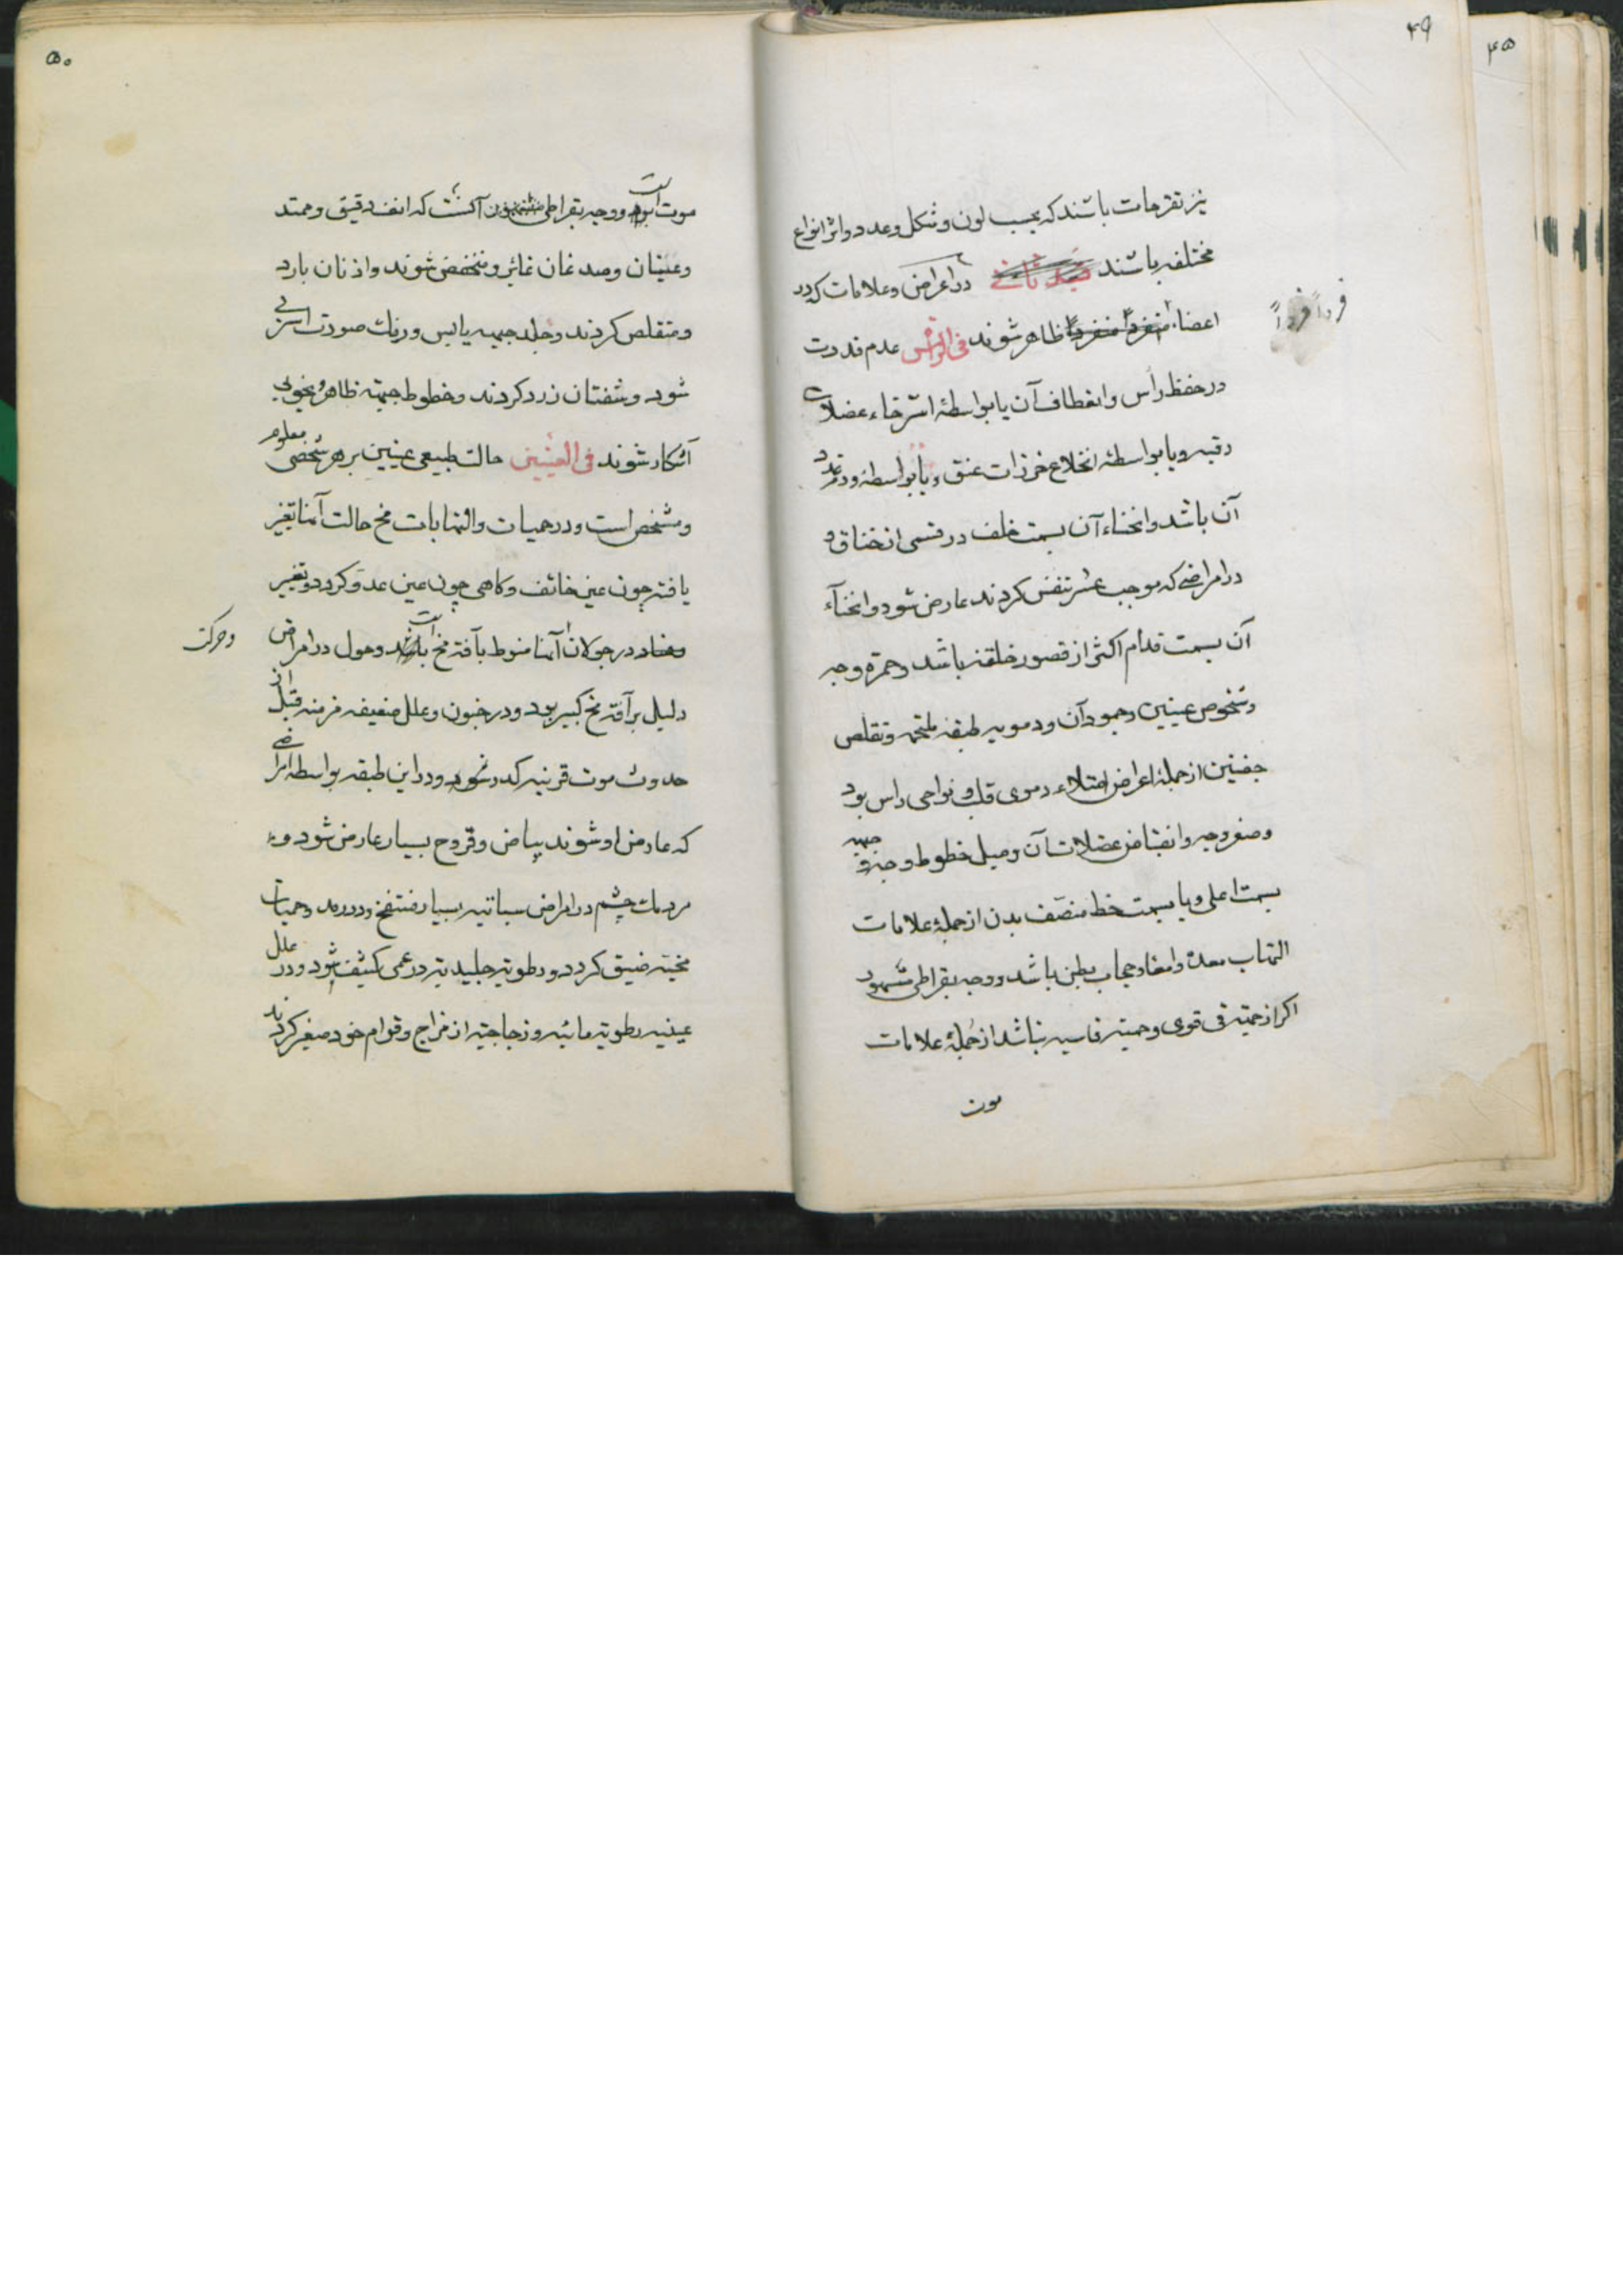 ۴۹
نیز تقرحات باشند که بحسب لون و شکل و عدد و اثر انواع
مختلفه باشند فصد ثانی در اعراض و علامات که در
اعضاء منفرداً منفرداً ظاهر شوند فی الرأس عدم قدرت
فرداً فرداً
در حفظ رأس و انعطاف آن یا بواسطۀ استرخاء عضلات
رقبه و یا بواسطۀ انخلاع خرزات عنق و یا بواسطۀ تمدد
آن باشد و انحناء آن بسمت خلف در قسمی از خناق و
در امراضی که موجب عسر تنفس کردند عارض شود و انحناء
آن بسمت قدام اکثر از قصور خلقة باشد و حمرة وجه
و شخوص عینین و جمود آن و دمویه طبقه ملتحمه و تقلص
جفنین از جملۀ اعراض امتلاء دموی قلب و نواحی راس بود
و صفر وجه و انقباض عضلات آن و میل خطوط وجنه و جبهه
بسمت اعلی و یا بسمت خط منصف بدن از جملۀ علامات
التهاب معدة و امعاء و حجاب بطن باشد و وجه بقراطی مشهود
اکر از حمیته قی قوی و حمیته قاسیه نباشد از جملۀ علامات
موت
۵۰
موت است و وجه بقراطی آنست که انف دقیق و ممتد
و عینان و صدغان غائر و منخفض شوند و اذنان بارد
و متقلص کردند و جلد جبهه یابس و رنک صورت اسربی
شود و شفتان زرد کردند و خطوط جبهه ظاهر و بخوبی
آشکار شوند فی العینین حالت طبیعی عینین بر هر شخصی معلوم
و مشخص است و در حمیات و التهابات مخ حالت آنها تغیر
یافته چون عین خائف و کاهی چون عین عدو کردد و تغییر
و حرکت
در جولان آنها منوط بآفة مخ است و حول در امراض
دلیل بر آفة مخ کبیر بود و در جنون و علل ضعیفه مزمنه قبل از
حدوث موت قرنیه کدر شود و در این طبقه بواسطه امراضی
که عارض او شوند بیاض و قروح بسیار عارض شود و
مردمک چشم در امراض سباتیه بسیار منتفخ و در رمد و حمیات
مخیته ضیق کردد و رطوبة جلیدیة در عمی کثیف شود و در علل
عینیه رطوبة مائیه و زجاجیة از مزاج و قوام خود متغیر کردند